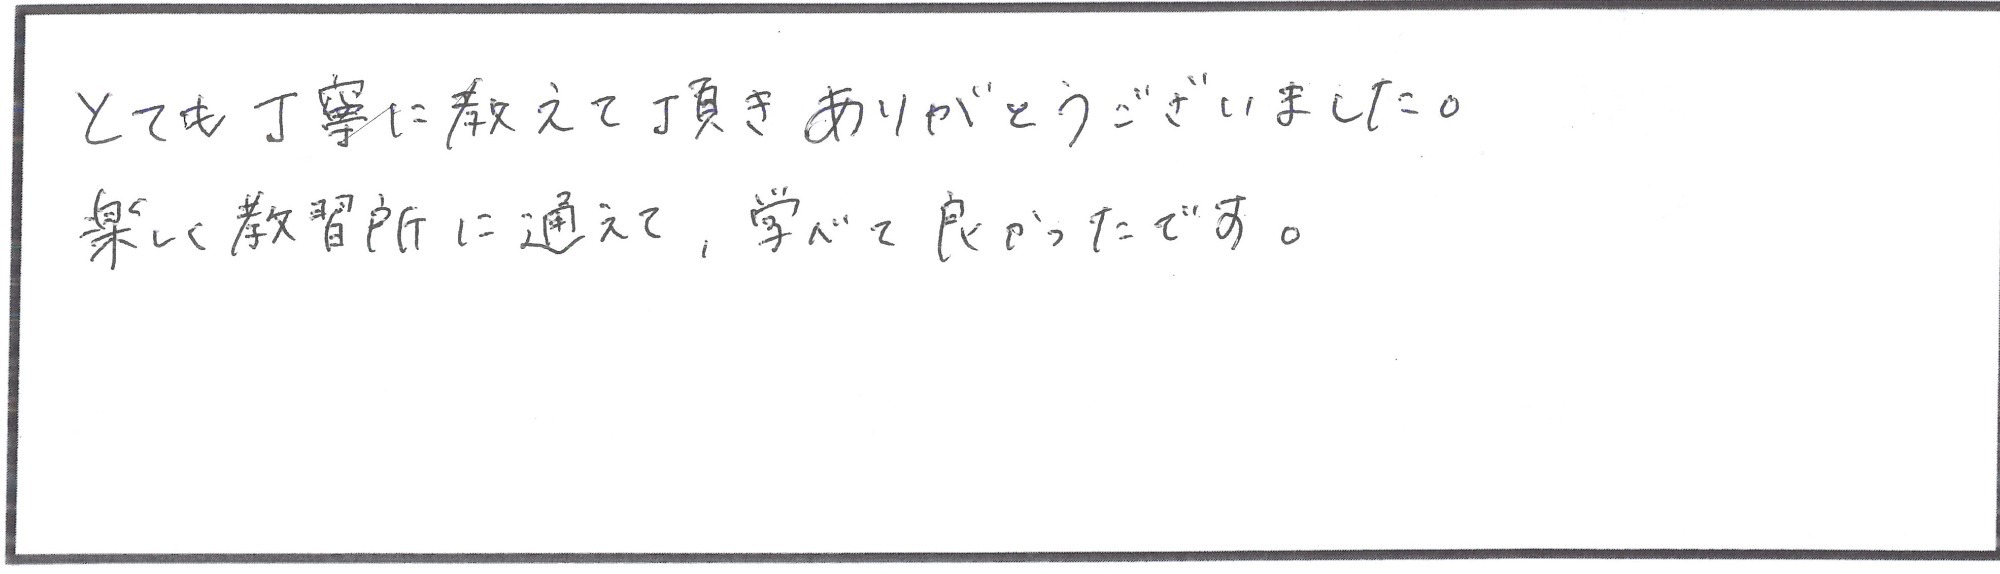 とても丁寧に教えて頂きありがとうございました。
楽しく教習所に通えて、学べて良かったです。